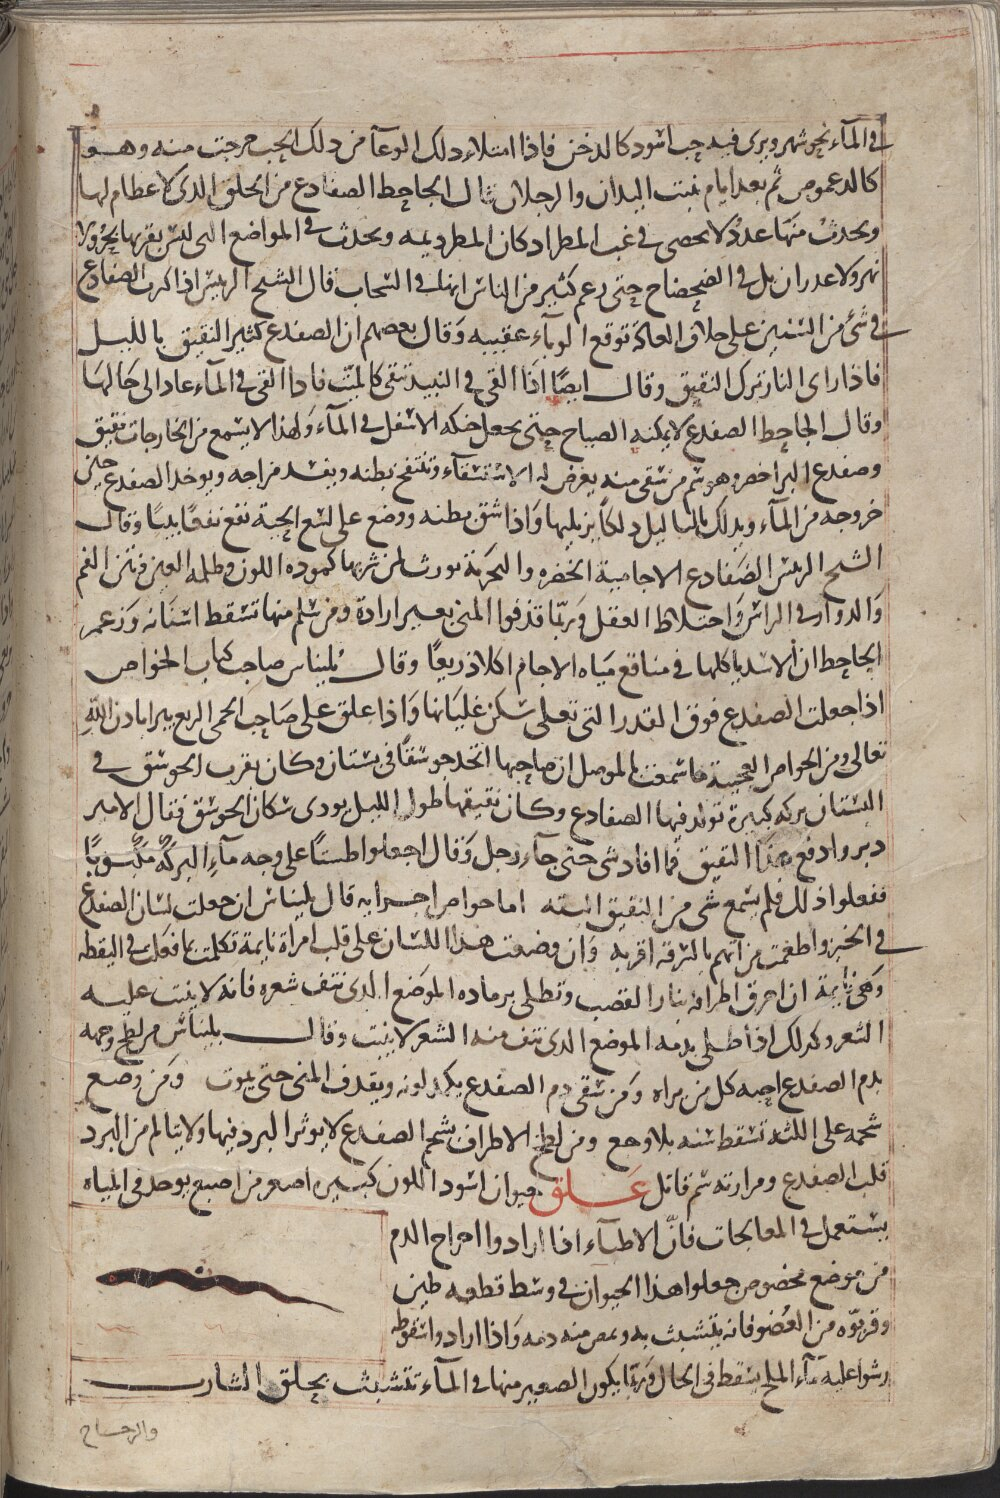 في المآء نحو شهر ويرى فيه حب اسود كالدخن فاذا امتلاء ذلك الوعآ من ذلك الحب خرجت منه وهو
كالدعموص ثم بعد ايام نبت اليدان والرجلان قال الجاحظ الضفادع من الخلق الذى لا عظام لها
ويحدث منها عدد لا يحصى في غب المطر اذ كان المطر ديمه ويحدث في المواضع التى ليس بقربها بحر ولا
نهر ولا غدران بل في الضحضاح حتى زعم كثير من الناس انها في السحاب قال الشيخ الرئيس اذا كثرت الضفادع
في شئ من السنين على خلاف العادة توقع الوبآء عقيبه وقال بعضهم ان الضفدع كثير النقيق بالليل
فاذا راى النار ترك النقيق وقال ايضا اذا القى في النبيذ تبقى كالميت فاذا القى في المآء عاد الى حالها
وقال الجاحظ الضفدع لا يمكنه الصياح حتى يجعل حنكه الاسفل في المآء ولهذا لا يسمع من الخارجات نقيق
وضفدع البر اخضر وهو سم من سقى منه يعرض له الاستسقآء وتنتفخ بطنه ويفسد مزاجه ويوخذ الضفدع حين
خروجه من المآء ويدلك بالثاليل دلكا يزيلها واذا شق بطنه ووضع على لسع الحية نفع نفعا بينا وقال
الشيخ الرئيس الضفادع الاجامية الخضره والبحرية تورث لمن شربها كمودة اللون وظلمة العين ونتن الفم
والدوار في الراس واختلاط العقل وربما قذفوا المنى بغير ارادة ومن سلم منها تسقط اسنانه وزعم
الجاحظ ان الاسد ياكلها في مناقع مياه الاجام اكلا ذريعا وقال بليناس صاحب كتاب الخواص
اذا جعلت الضفدع فوق القدر التى تغلى سكن غليانها واذا علق على صاحب الحمى الربع يبرا باذن الله
تعالى ومن الخواص العجيبة ما سمعت بالموصل ان صاحبها اتخذ جوسقا في بستان وكان بقرب الجوسق في
البستان بركة كبيرة تولد فيها الضفادع وكان نقيقها طول الليل يوذى سكان الجوسق فقال الامير
دبروا دفع هذا النقيق فما افاد شى حتى جآء رجل وقال اجعلوا طستا على وجه مآء البركة مكبوبا
ففعلوا ذلك فلم يسمع شى من النقيق البته اما خواص اجزايه قال بليناس ان جعلت لسان الضفدع
في الخبز واطعمت من اتهم بالسرقة اقر به وان وضعت هذا اللسان على قلب امراة نايمة تكلمت بما فعلت في اليقظه
وهى نايمة ان احرق اطرافه بنار القصب وتطلى برماده الموضع الذى نتف شعره فانه لا ينبت عليه
الشعر وكذلك اذا طلى بدمه الموضع الذى نتف منه الشعر لا ينبت وقال بليناس من لطخ وجهه
بدم الضفدع احبه كل من يراه ومن سقى دم الضفدع يكمد لونه ويقذف المنى حتى يموت ومن وضع
شحمه على اللثه تسقط سنه بلا وجع ومن لطخ الاطراف بشحم الضفدع لا يوثر البرد فيها ولا يتالم من البرد
قلب الضفدع ومرارته سم قاتل علق حيوان اسود اللون كبيره اصغر من اصبع يوجد في المياه
يستعمل في المعالجات فان الاطبآء اذا ارادوا اخراج الدم
من موضع مخصوص جعلوا هذا الحيوان في وسط قطعه طين
وقربوه من العضو فانه يتشبث به ويمص منه دمه واذا ارادوا سقوطه
رشوا عليه مآء الملح يسقط في الحال وربما يكون الصغير منها في المآء تتشبث بحلق الشارب
والزجاج